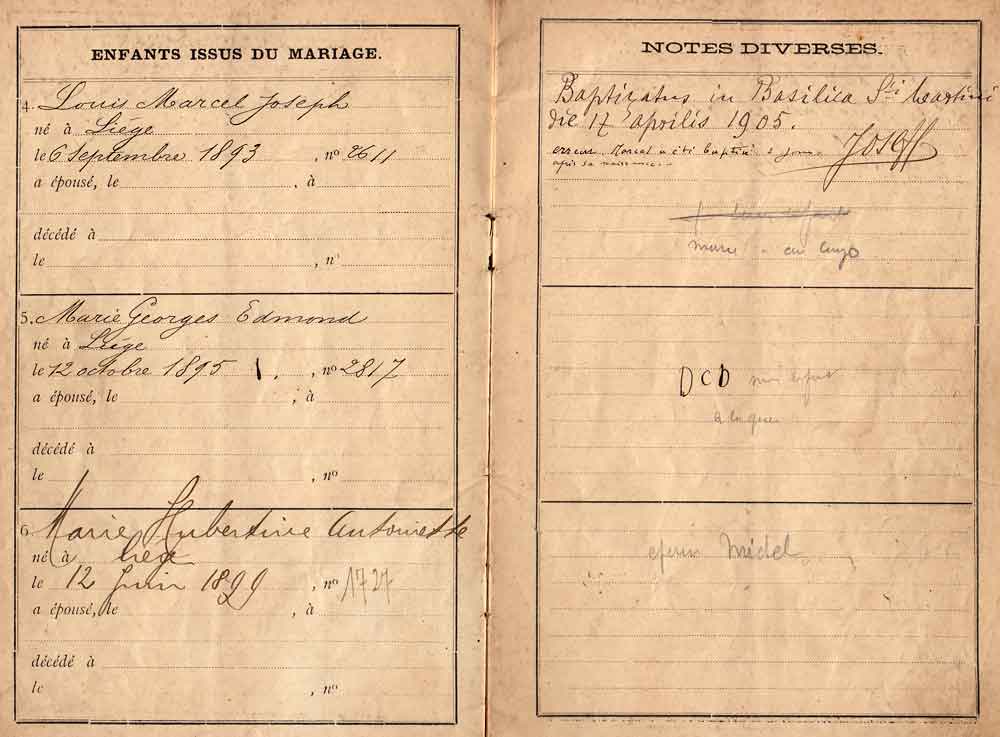 ENFANTS ISSUS DU MARIAGE.
4. Louis Marcel Joseph
né à Liége
le 6 Septembre 1893, nº 2611
a épousé, le , à
décédé à
le , nº
5. Marie Georges Edmond
né à Liége
le 12 octobre 1895 , nº 2817
a épousé, le , à
décédé à
le , nº
6. Marie Hubertine Antoinette
né à
le 12 Juin 1899 , nº 1727
a épousé, le , à
décédé à
le , nº
NOTES DIVERSES.
Baptizatus in Basilica Sti Martini
die 17 aprilis 1905.
erreur Marcel a été baptisé 2 jours
après sa naissance
DCD
à la guerre